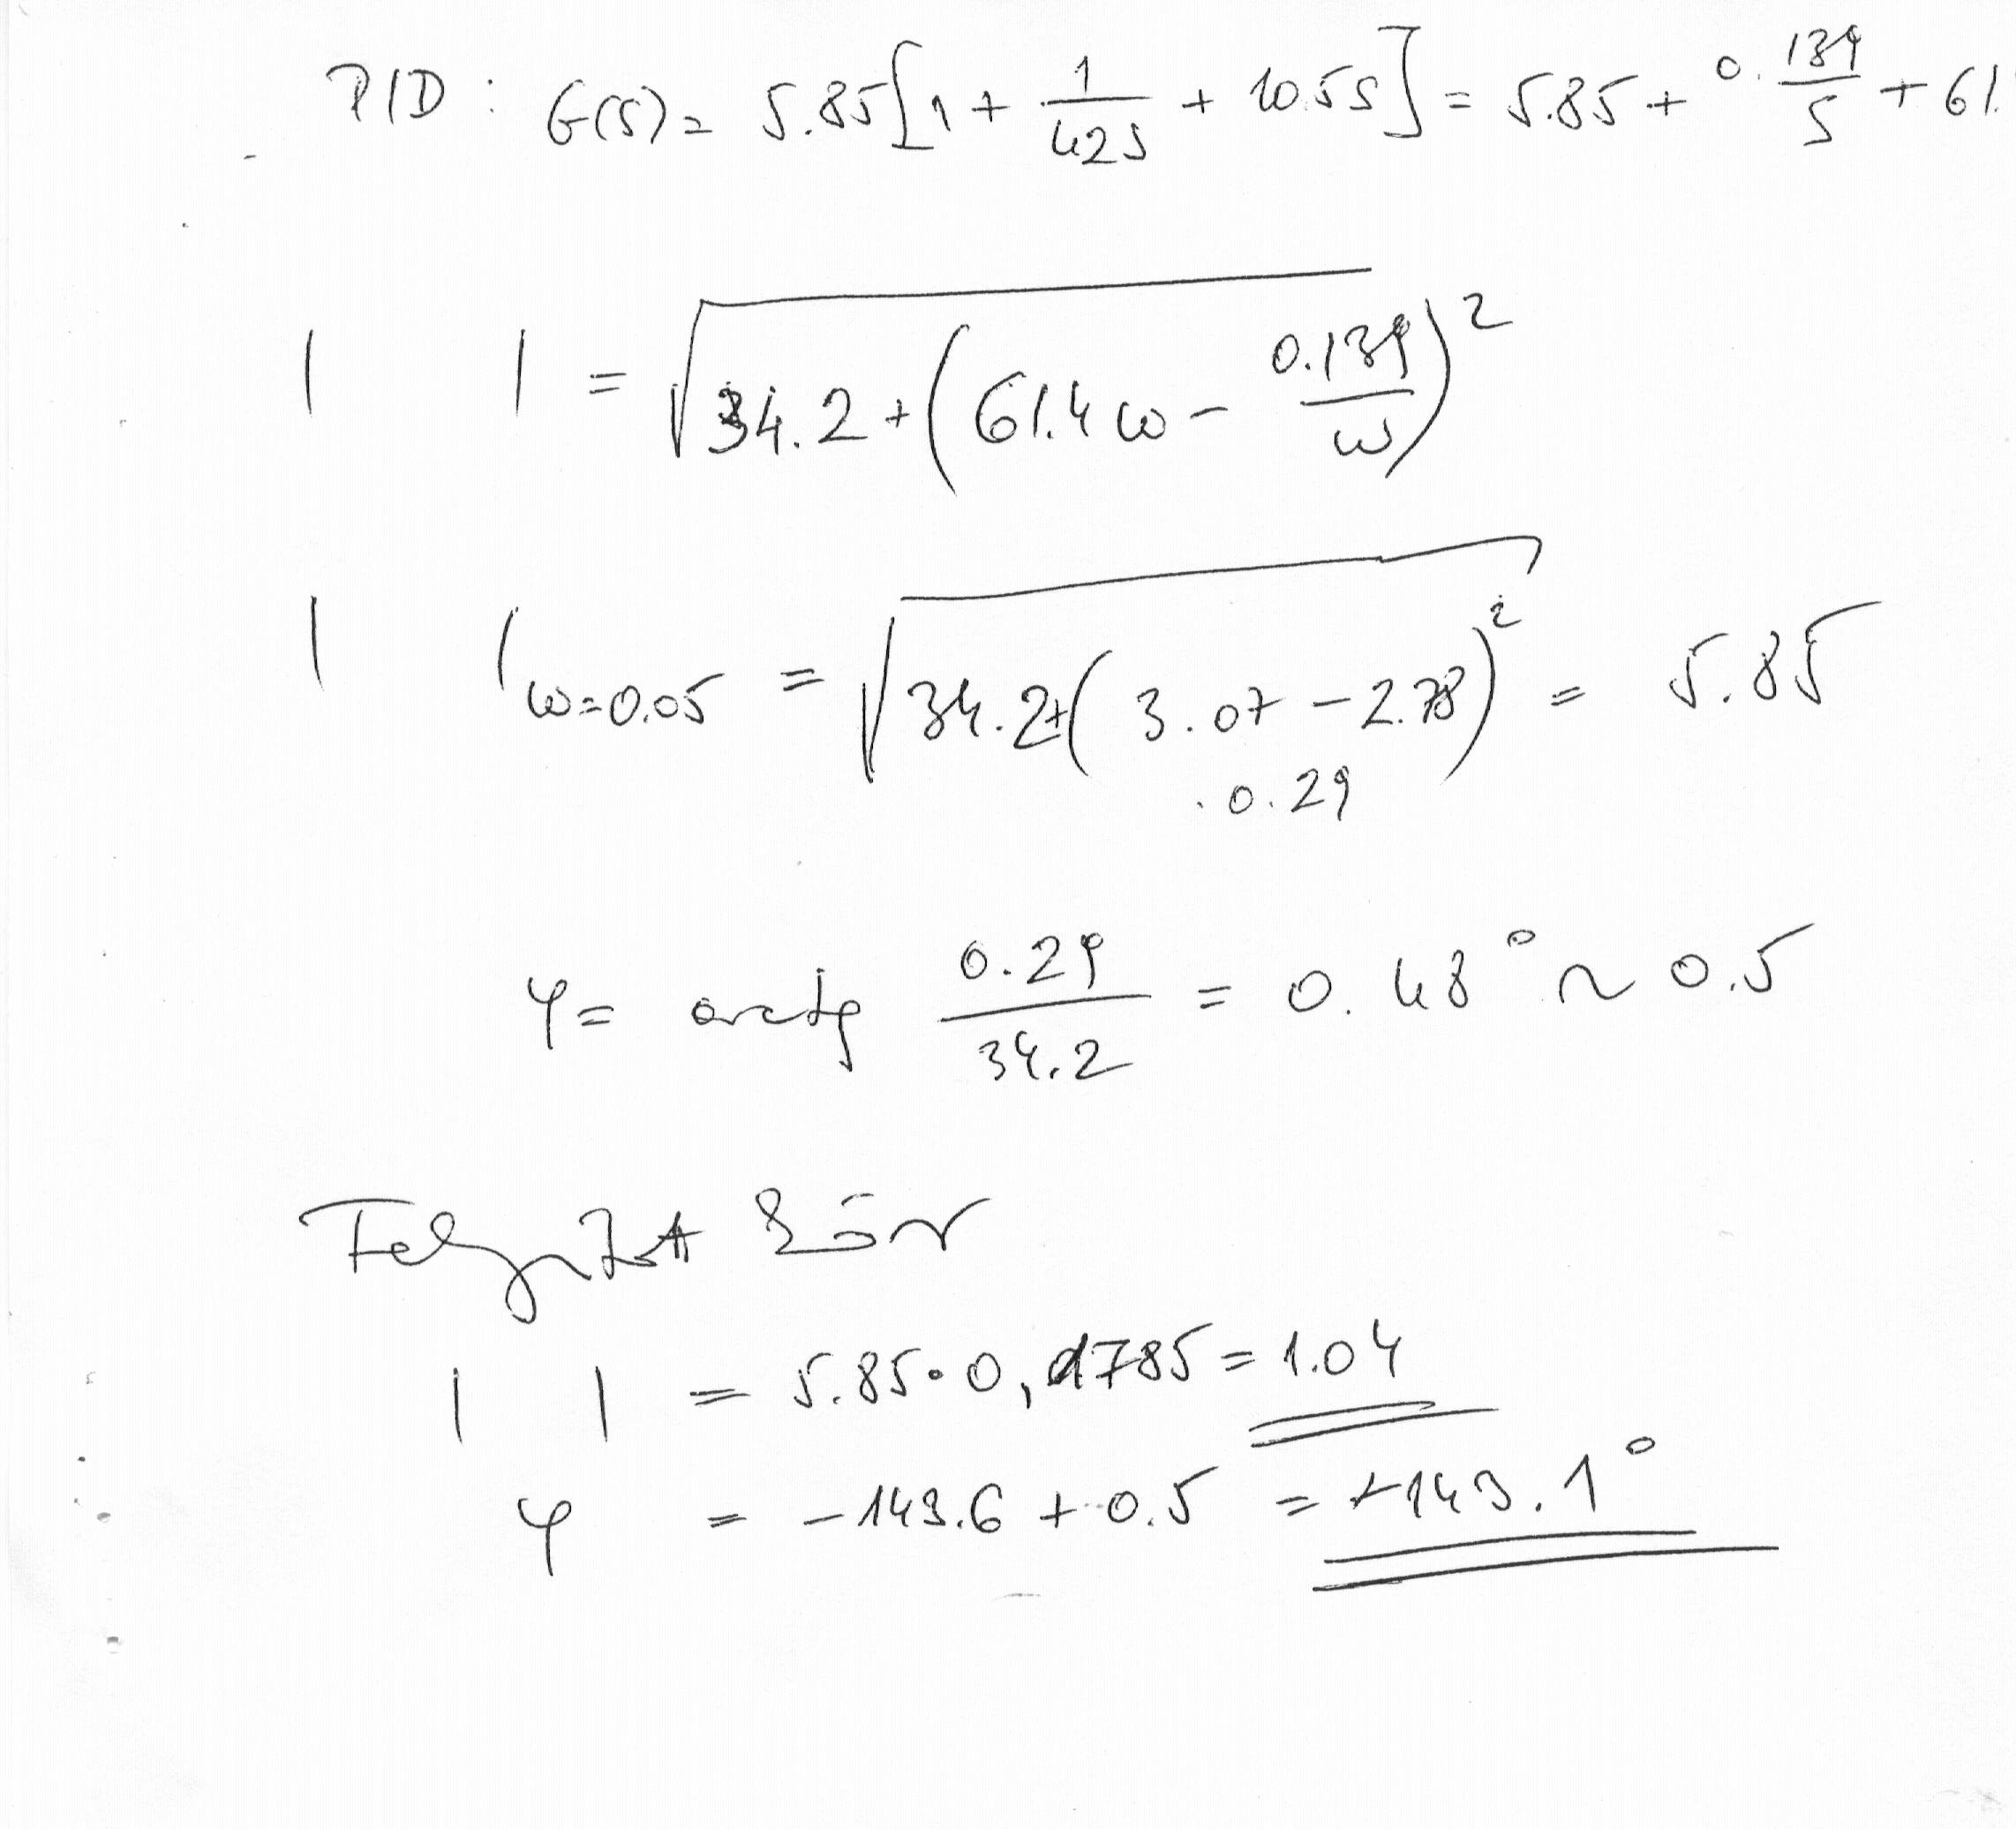 PID: G(s) = 5.85[1 + 1/42s + 10.5s] = 5.85 + 0.139/s + 61.
| | = √34.2 + (61.4ω - 0.139/ω)²
| |ω=0.05 = √34.2+(3.07 - 2.78)² = 5.85
0.29
φ = arctg 0.29/34.2 = 0.48° ~ 0.5
Felnyitott kör
| | = 5.85 · 0,1785 = 1.04
φ = -143.6 + 0.5 = -143.1°